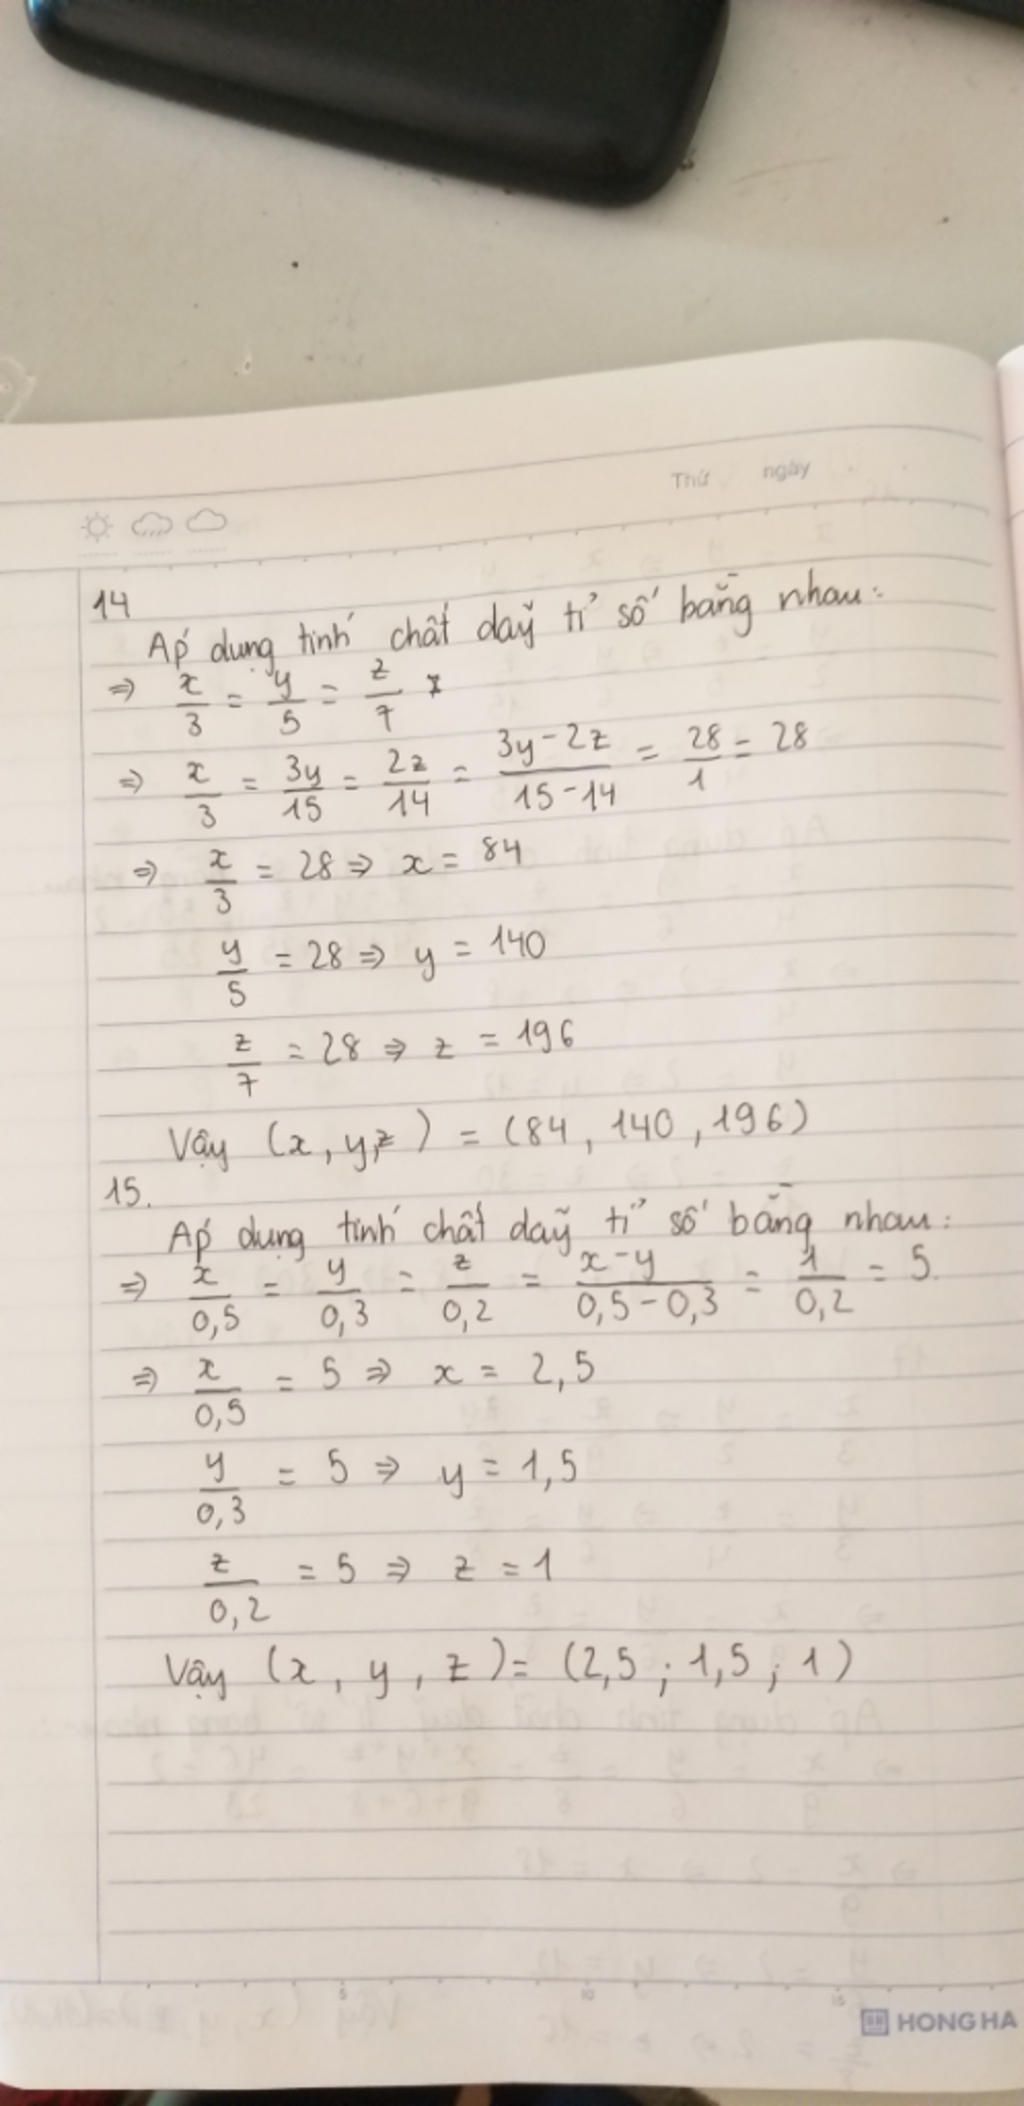 Thứ ngày
14
Áp dụng tính chất dãy tỉ số bằng nhau:
⇒ x/3 = y/5 = z/7
⇒ x/3 = 3y/15 = 2z/14 = (3y-2z)/(15-14) = 28/1 = 28
⇒ x/3 = 28 ⇒ x = 84
y/5 = 28 ⇒ y = 140
z/7 = 28 ⇒ z = 196
Vậy (x, y, z) = (84, 140, 196)
15.
Áp dụng tính chất dãy tỉ số bằng nhau:
⇒ x/0,5 = y/0,3 = z/0,2 = (x-y)/(0,5-0,3) = 1/0,2 = 5.
⇒ x/0,5 = 5 ⇒ x = 2,5
y/0,3 = 5 ⇒ y = 1,5
z/0,2 = 5 ⇒ z = 1
Vậy (x, y, z) = (2,5; 1,5; 1)
5 10 15
HONG HA